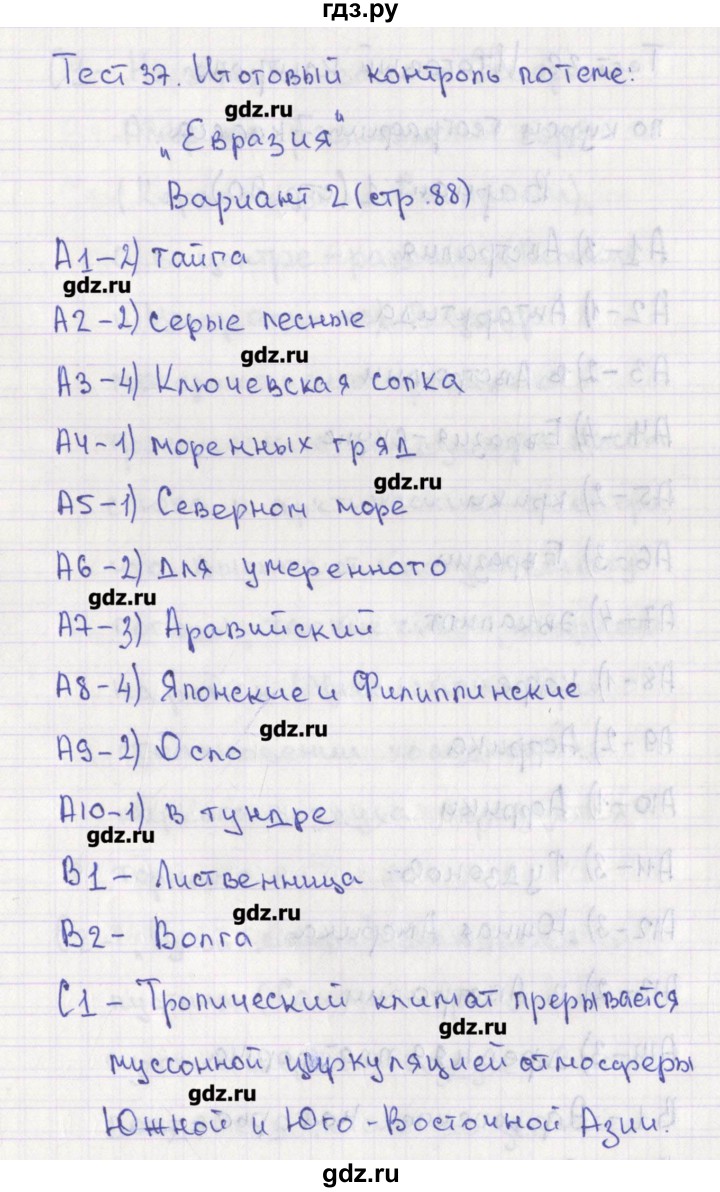 гдз.ру
Тест 37. Итоговый контроль по теме:
gdz.ru
"Евразия"
Вариант 2 (стр.88)
А1-2) тайга
gdz.ru
А2-2) серые лесные
gdz.ru
А3-4) Ключевская сопка
А4-1) моренных гряд
gdz.ru
А5-1) Северном море
А6-2) для умеренного
gdz.ru
А7-3) Аравийский
А8-4) Японские и Филиппинские
gdz.ru
А9-2) Осло
А10-1) в тундре
gdz.ru
В1 - Лиственница
gdz.ru
В2 - Волга
С1 - Тропический климат прерывается
gdz.ru
муссонной циркуляцией атмосферы
gdz.ru
Южной и Юго-Восточной Азии.
gdz.ru